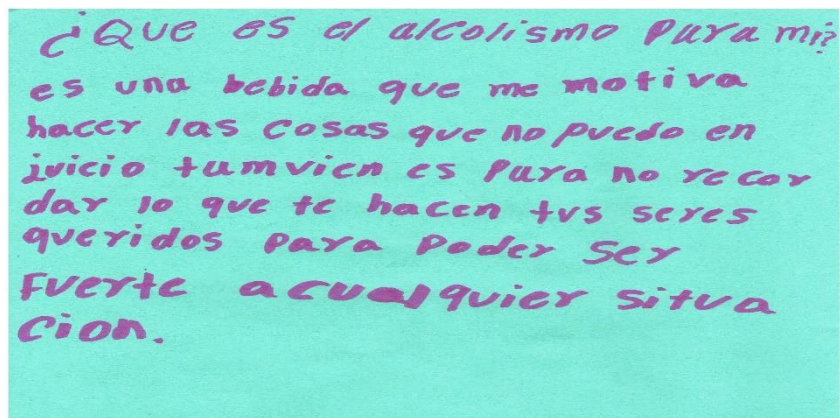 ¿Que es el alcolismo para mi?
es una bebida que me motiva
hacer las cosas que no puedo en
juicio tumvien es para no recor
dar lo que te hacen tus seres
queridos para poder ser
fuerte acualquier situa
cion.